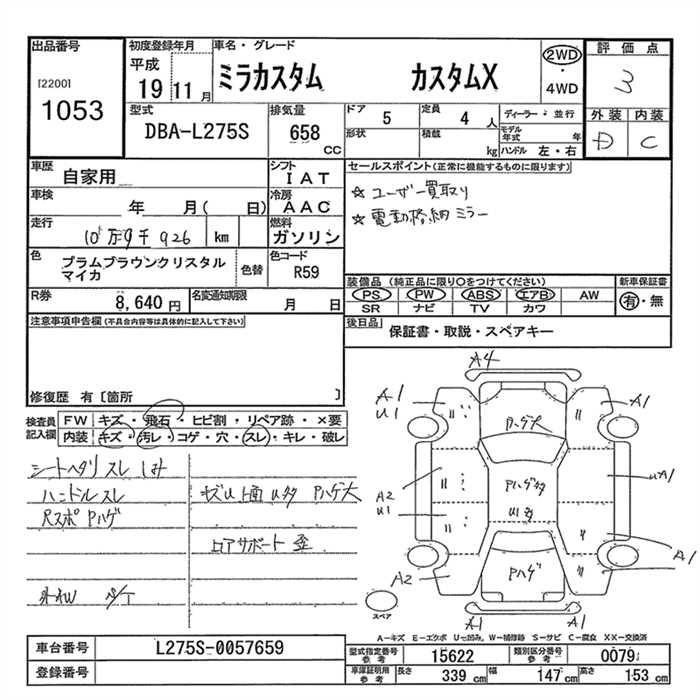 出品番号 初度登録年月 車名・グレード 評価点
[2200] 平成 ミラカスタム カスタムX 2WD・4WD 3
1053 19 11月
型式 排気量 ドア 5 定員 4人 ディーラー・並行 外装 内装
DBA-L275S 658 CC 形状 積載 kg モデル年式 年 ハンドル 左・右 D C
車歴 自家用 シフト IAT セールスポイント(正常に機能するものに限ります)
車検 年 月( 日) 冷房 AAC ☆ユーザー買取り
走行 10万9千926 km 燃料 ガソリン ☆電動格納ミラー
色 プラムブラウンクリスタル 色替 色コード R59
マイカ
装備品(純正品に限り○をつけてください) 新車保証書
PS PW ABS エアB AW 有・無
SR ナビ TV カワ
R券 8,640円 名変通知期限 月 日
後日品 保証書・取説・スペアキー
注意事項申告欄(不具合内容等は具体的に記入して下さい)
修復歴 有〔箇所 〕
検査員記入欄 FW キズ・飛石・ヒビ割・リペア跡・×要
内装 キズ・汚レ・コゲ・穴・スレ・キレ・破レ
シートヘタリ スレ しみ
ハンドルスレ
Pハゲ大
Pハゲ
コアサポート 歪
A4
A1 U1 A1
Pハゲ大
A2 U1 Pハゲ多 UA1
U1多
A2 Pハゲ A1
A1 A1
スペア
A-キズ E-エクボ U-凹み W-補修跡 S-サビ C-腐食 XX-交換済
車台番号 L275S-0057659
登録番号
型式指定番号 参考 15622 類別区分番号 参考 0079
車庫証明用 参考 長さ 339 cm 幅 147 cm 高さ 153 cm